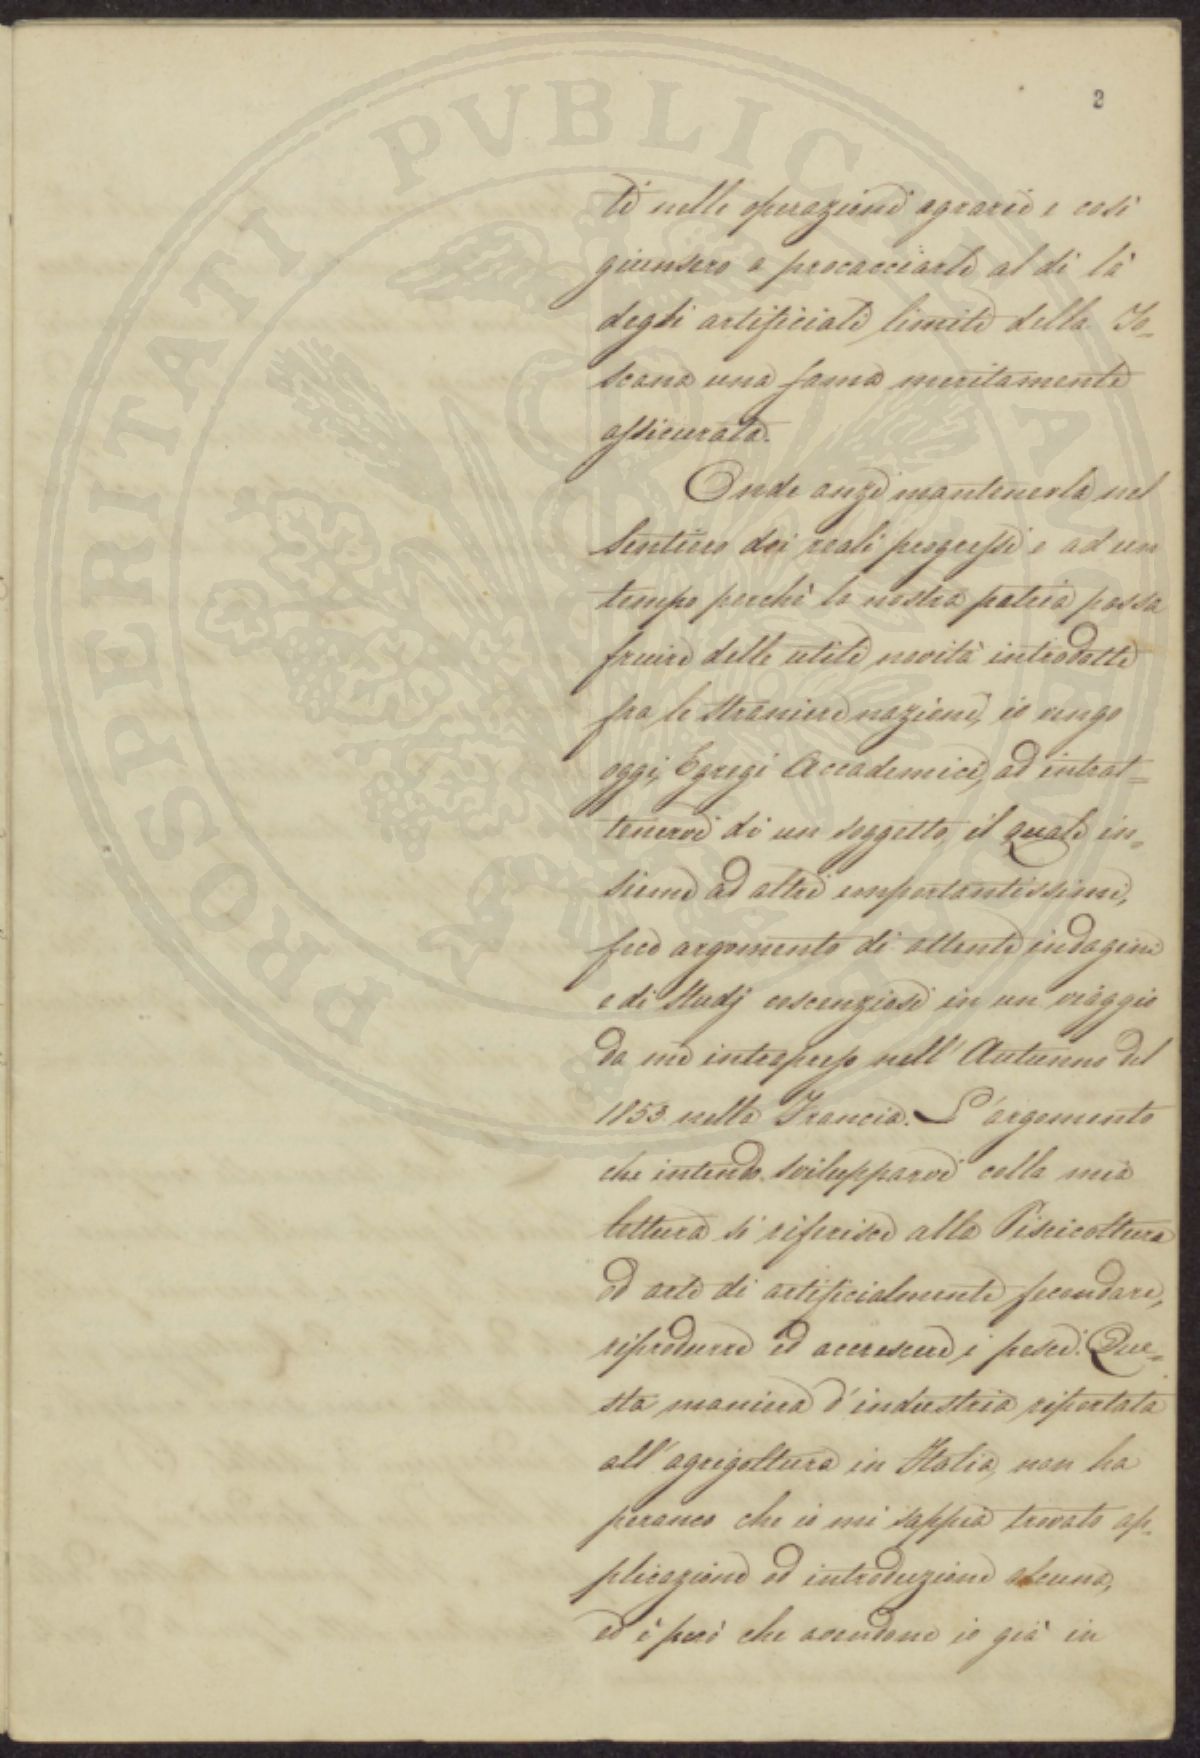 2
ti nelle operazioni agrarie e così
giunsero a procacciarle al di là
degli artificiali limiti della To=
scana una fama meritamente
assicurata.
Onde anzi mantenerla nel
sentiero dei reali progressi e ad un
tempo perchè la nostra patria possa
fruire delle utili novità introdotte
fra le straniere nazioni, io vengo
oggi, Egregi Accademici, ad intrat=
tenervi di un soggetto, il quale in=
sieme ad altri importantissimi,
fece argomento di attente indagini
e di studj coscenziosi in un viaggio
da me intrapreso nell'Autunno del
1853 nella Francia. L'argomento
che intendo svilupparvi colla mia
lettura si riferisce alla Piscicoltura
od arte di artificialmente fecondare,
riprodurre ed accrescere i pesci. Que=
sta maniera d'industria riportata
all'agrigoltura in Italia, non ha
peranco che io mi sappia trovato ap=
plicazione od introduzione alcuna,
ed è però che avendone io già in
PROSPERITATI PVBLICAE AVGENDAE